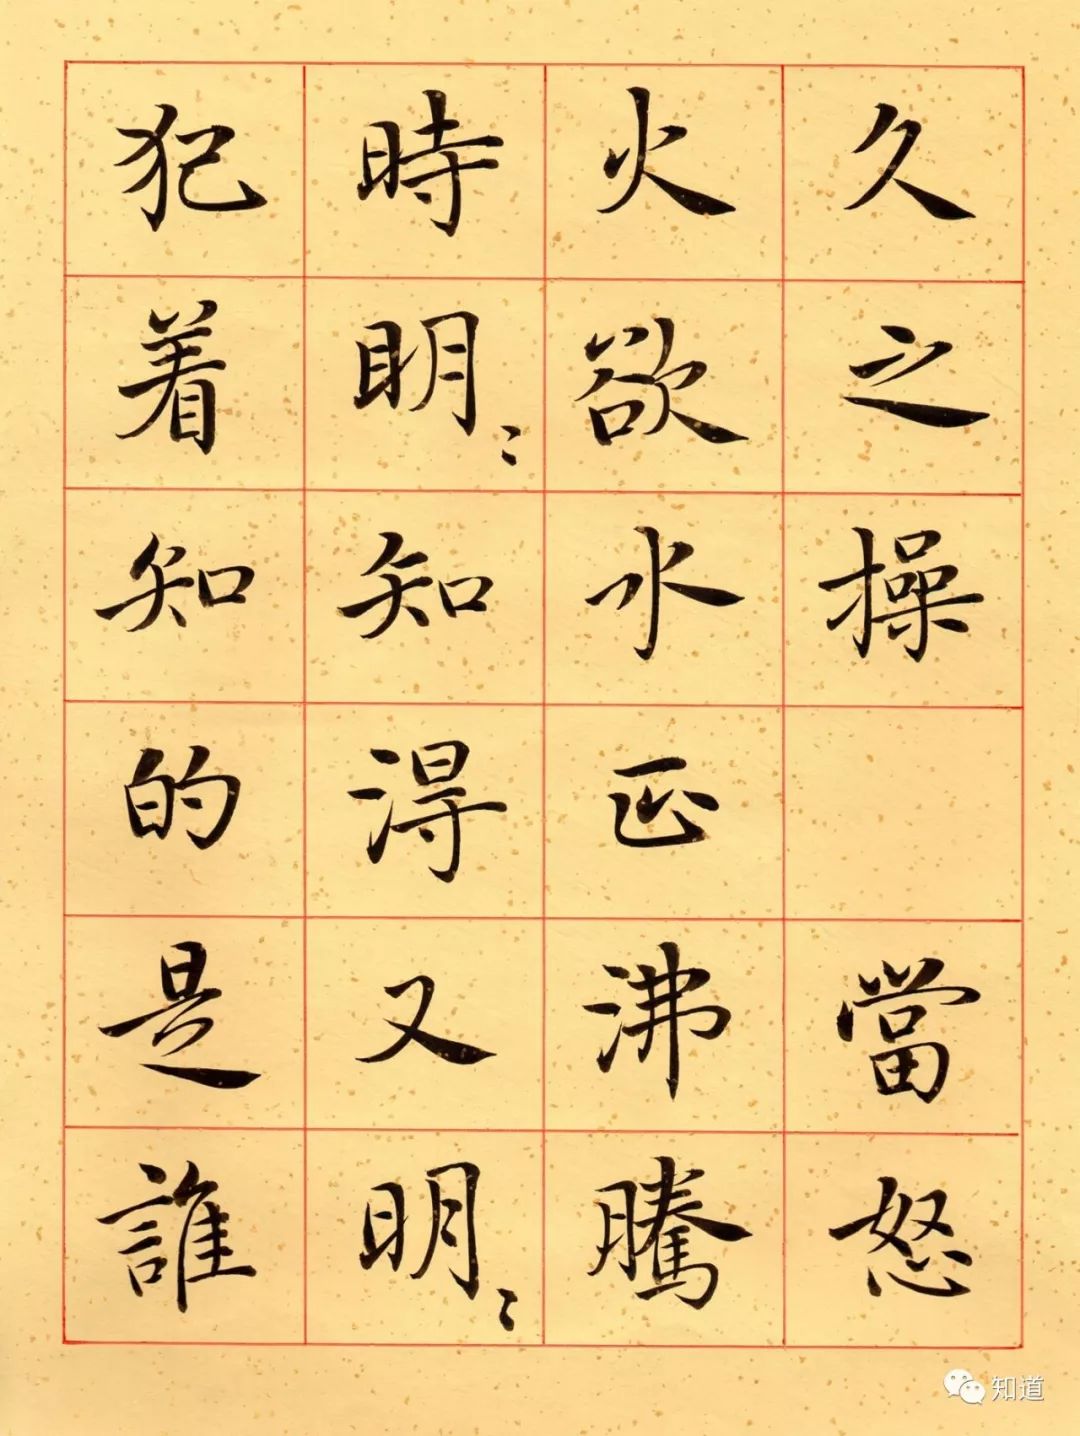 久之操 當怒
火欲水正沸騰
時明〻知得又明〻
犯着知的是誰
知道